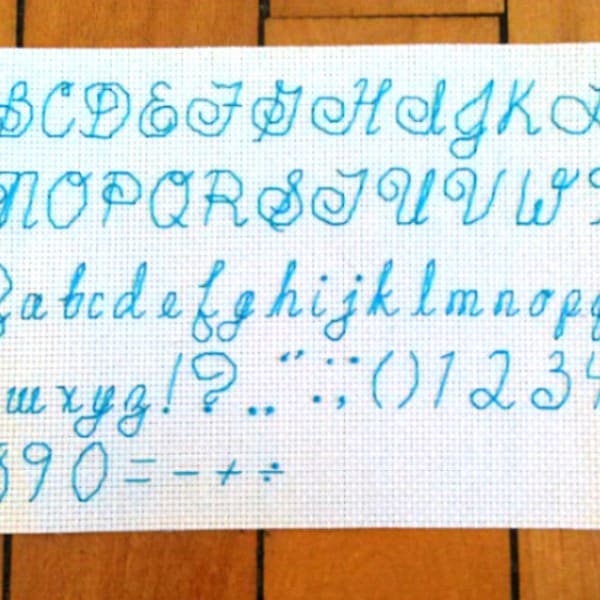 B C D E F G H I J K L
N O P Q R S T U V W
a b c d e f g h i j k l m n o p q
w x y z ! ? . , " : ; ( ) 1 2 3 4
8 9 0 = - + ÷